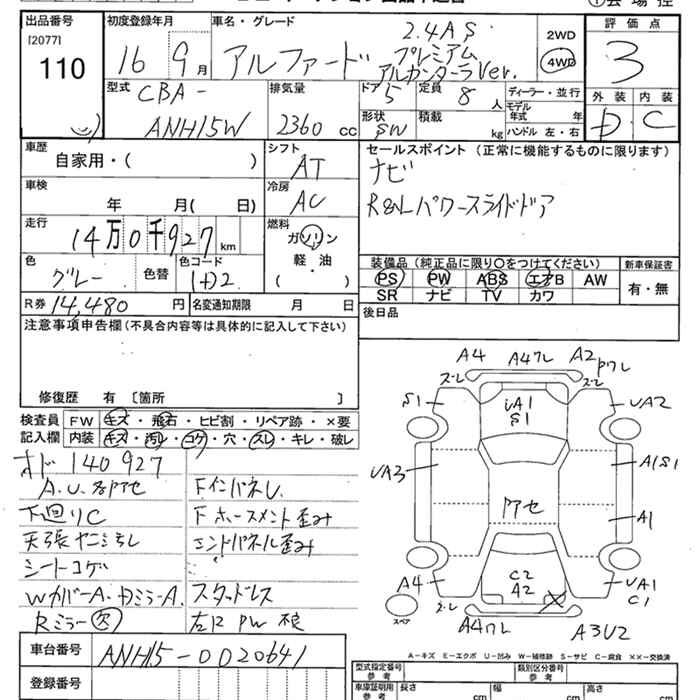 出品番号
[2077]
110
初度登録年月
16 9月
車名・グレード
アルファード
2.4AS
プレミアム
アルカンターラVer.
2WD
4WD
評価点
3
外装 内装
D C
型式
CBA-
ANH15W
排気量
2360 cc
ドア 5
定員 8 人
形状
SW
積載
kg
ディーラー・並行
モデル
年式 年
ハンドル 左・右
車歴
自家用・( )
シフト
AT
車検
年 月( 日)
冷房
AC
走行
14万0千927km
燃料
ガソリン
軽・油
( )
色
グレー
色替
色コード
1D2
R券 14,480円
名変通知期限 月 日
セールスポイント (正常に機能するものに限ります)
ナビ
R&Lパワースライドドア
装備品 (純正品に限り○をつけてください)
PS PW ABS エアB AW
SR ナビ TV カワ
新車保証書
有・無
後日品
注意事項申告欄 (不具合内容等は具体的に記入して下さい)
修復歴 有 [箇所 ]
検査員
記入欄
FW キズ・飛石・ヒビ割・リペア跡・×要
内装 キズ・汚レ・コゲ・穴・スレ・キレ・破レ
オド 140927
A.U.各アセ
下廻りC
天張ヤニ汚レ
シートコゲ
WカバーA・DミラーA.
Rミラー欠
FインパネU.
Fホースメント歪み
エンドパネル歪み
スタッドレス
左リPW不良
A4 A4ワレ A2 Pワレ
ズーレ ズーレ
S1 UA1 S1 UA2
UA3 A1S1
アセ A1
A4 C2 A2 UA1 C1
ズーレ
スペア
A4ワレ A3U2
A-キズ E-エクボ U-凹み W-補修跡 S-サビ C-腐食 ××-交換済
車台番号
ANH15-0020641
登録番号
型式指定番号
参考
類別区分番号
参考
車庫証明用
参考
長さ cm
幅 cm
高さ cm